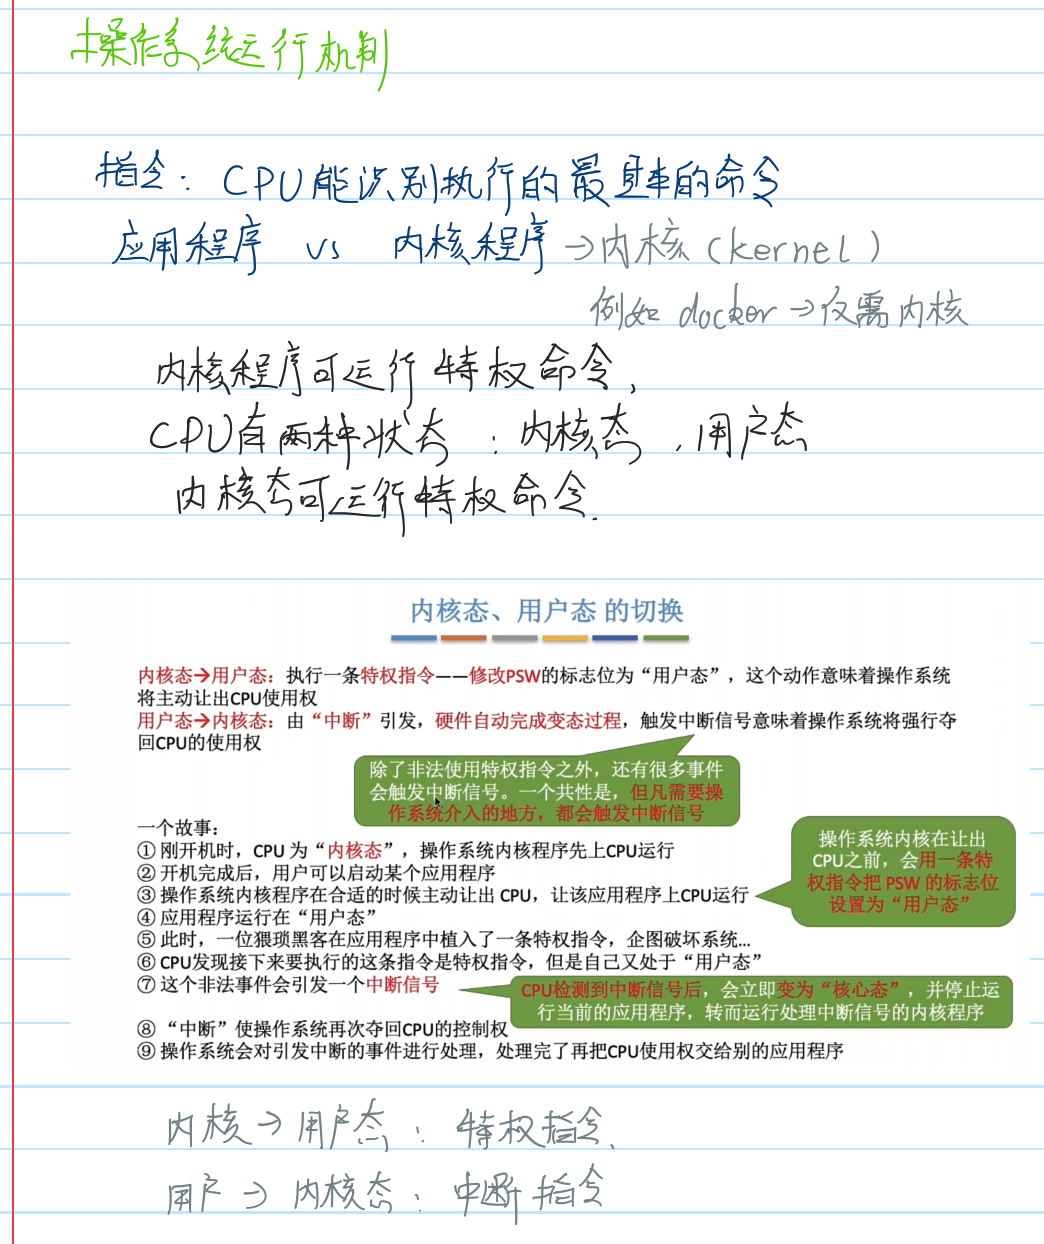 操作系统运行机制
指令：CPU能识别执行的最基本的命令
应用程序 vs 内核程序→内核(kernel)
例如 docker→仅需内核
内核程序可运行特权命令,
CPU有两种状态：内核态,用户态
内核态可运行特权命令.
内核态、用户态 的切换
内核态→用户态：执行一条特权指令——修改PSW的标志位为“用户态”，这个动作意味着操作系统
将主动让出CPU使用权
用户态→内核态：由“中断”引发，硬件自动完成变态过程，触发中断信号意味着操作系统将强行夺
回CPU的使用权
除了非法使用特权指令之外，还有很多事件
会触发中断信号。一个共性是，但凡需要操
作系统介入的地方，都会触发中断信号
一个故事：
① 刚开机时，CPU 为“内核态”，操作系统内核程序先上CPU运行
② 开机完成后，用户可以启动某个应用程序
③ 操作系统内核程序在合适的时候主动让出 CPU，让该应用程序上CPU运行
操作系统内核在让出
CPU之前，会用一条特
权指令把 PSW 的标志位
设置为“用户态”
④ 应用程序运行在“用户态”
⑤ 此时，一位猥琐黑客在应用程序中植入了一条特权指令，企图破坏系统...
⑥ CPU发现接下来要执行的这条指令是特权指令，但是自己又处于“用户态”
⑦ 这个非法事件会引发一个中断信号
CPU检测到中断信号后，会立即变为“核心态”，并停止运
行当前的应用程序，转而运行处理中断信号的内核程序
⑧ “中断”使操作系统再次夺回CPU的控制权
⑨ 操作系统会对引发中断的事件进行处理，处理完了再把CPU使用权交给别的应用程序
内核→用户态：特权指令.
用户→内核态：中断指令